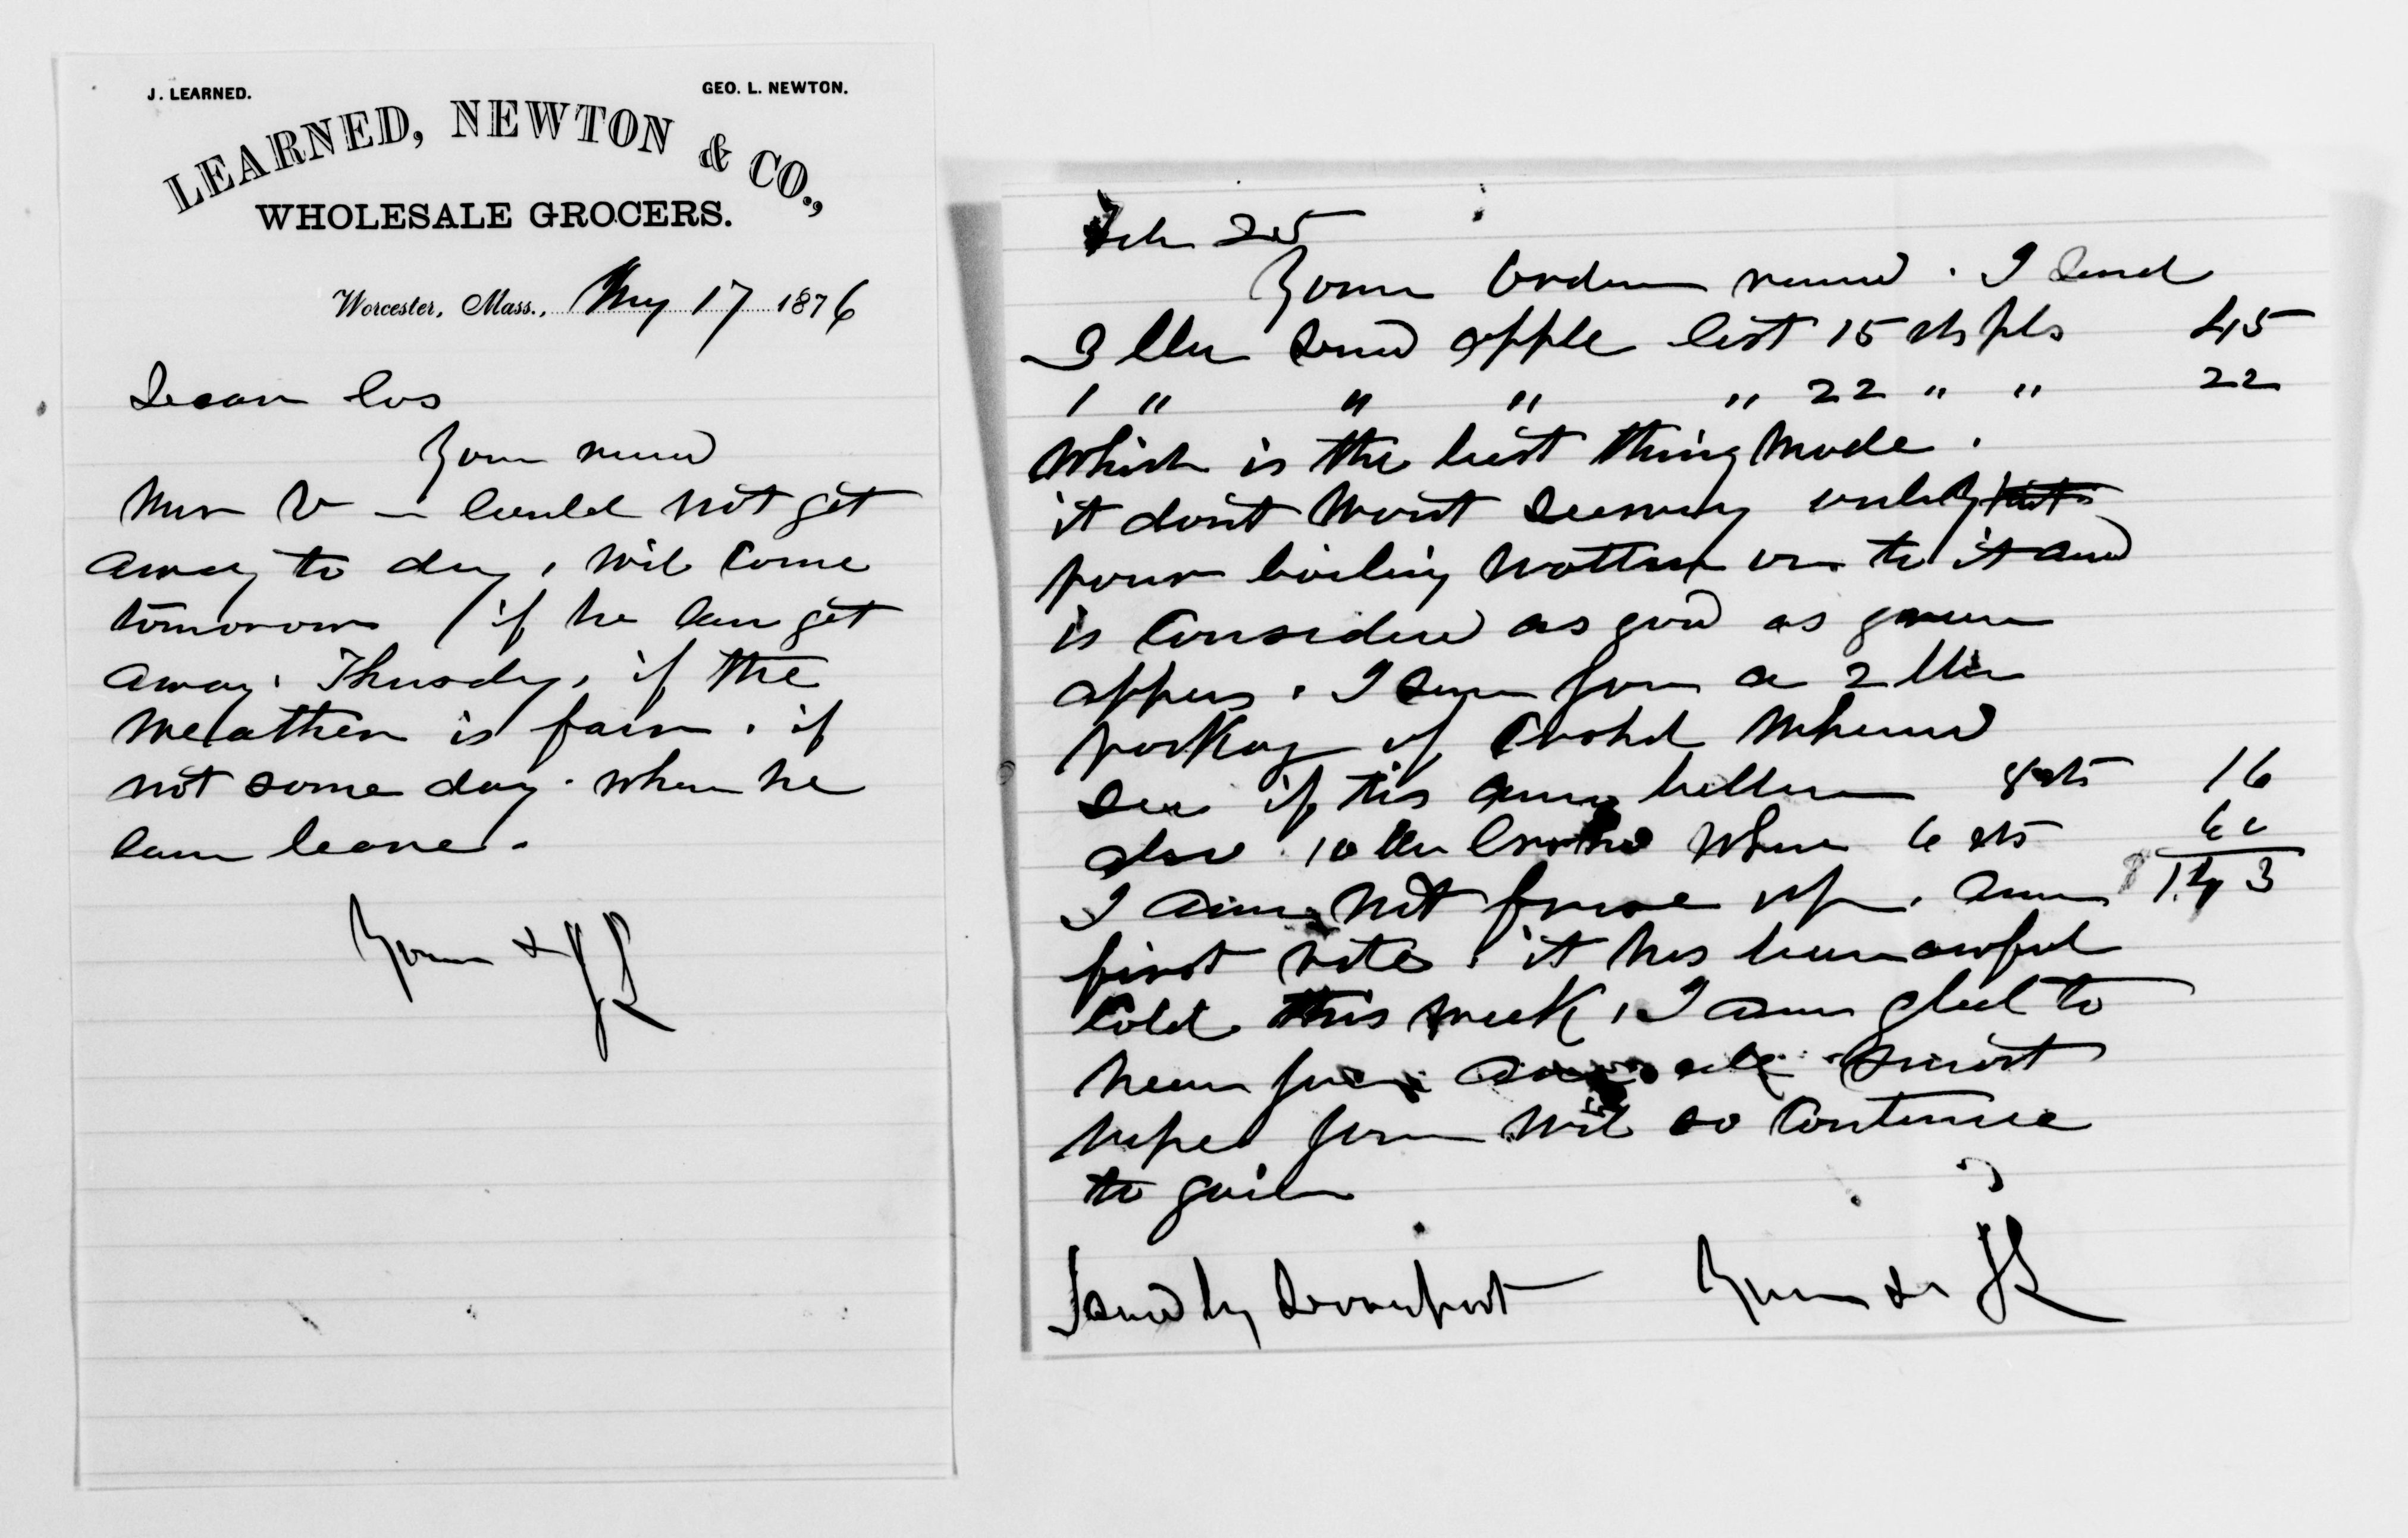 J. LEARNED. GEO. L. NEWTON.
LEARNED, NEWTON & CO.,
WHOLESALE GROCERS.
Worcester, Mass., May 17 1876
Dear Cos
Your recivd
Mr V — could not get
away to day, wil come
tomorow if he can get
away. Thursdy, if the
weather is fair. if
not some day. when he
can leave.
Yours &c JL
Feb 25
Your order recivd. I send
3 lbs dried apple best 15 cts pls 45
1 " " " " 22 " " 22
which is the best thing made.
it dont want
pour boiling watter on to it and
is considerd as good as green
appels. I send you a 2 lbs
packag of Crushd Wheat
see if tis any better 8 cts 16
also 10 lbs Crushd Wheat 6 cts 60
I am not froze up. am 1.43
first rate. it has been awful
Cold this week, I am glad to
hear you are all smart
hopes you wil so continue
to gain
Send by Davenport Yours &c JL